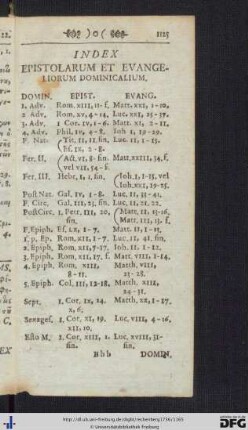 )o( 1125
INDEX
EPISTOLARUM ET EVANGE-
LIORUM DOMINICALIUM.
DOMIN. EPIST. EVANG.
1. Adv. Rom. XIII, 11-f. Matt. XXI, 1-10.
2 Adv. Rom. XV, 4-14. Luc. XXI, 25-37.
3. Adv. 1 Cor. IV, 1-6. Matt. XI, 2-11.
4. Adv. Phil. IV, 4-8. Joh 1, 19-29.
F. Nat. Tit. II, 11. fin. Luc. II, 1-13.
Ef. IX, 2-8.
Fer. II, Act. VI, 8-fin Matt. XXIII, 34, f.
vel VII, 54-f.
Fer. III. Hebr, 1, 1, fin Joh 1, 1-15, vel
Joh. XXI, 19-25.
Post Nat. Gal. IV, 1-8. Luc, II, 33-41.
F. Circ. Gal. III, 23, fin. Luc. II, 21.
Post Circ. 1, Petr. III, 20, Matt, II, 13-16,
fin. Matt, III, 13, f.
F. Epiph. Ef, LX, 1-7. Matt, II, 1-13.
1. p. Ep. Rom, XII, 1-7. Luc. II, 41, fin.
2. Epiph. Rom, XII, 7-17. Joh. II, 1-12.
3. Epiph. Rom, XII, 17, f. Matt. VIII, 1-14.
4. Epiph. Rom, XIII, Matth. VIII,
8-11. 23-28.
5. Epiph. Col, III, 12-18, Matth, XIII,
24-31.
Sept. 1, Cor, IX, 24, Matth, XX, 1-17.
X, 6.
Sexages. 1, Cor, XI, 19, Luc, VIII, 4-16,
XII, 10.
Esto M. 1, Cor, XIII, 1, Luc, XVIII, 31-
fin. fin.
Bbb DOMIN.
© Universitätsbibliothek Freiburg